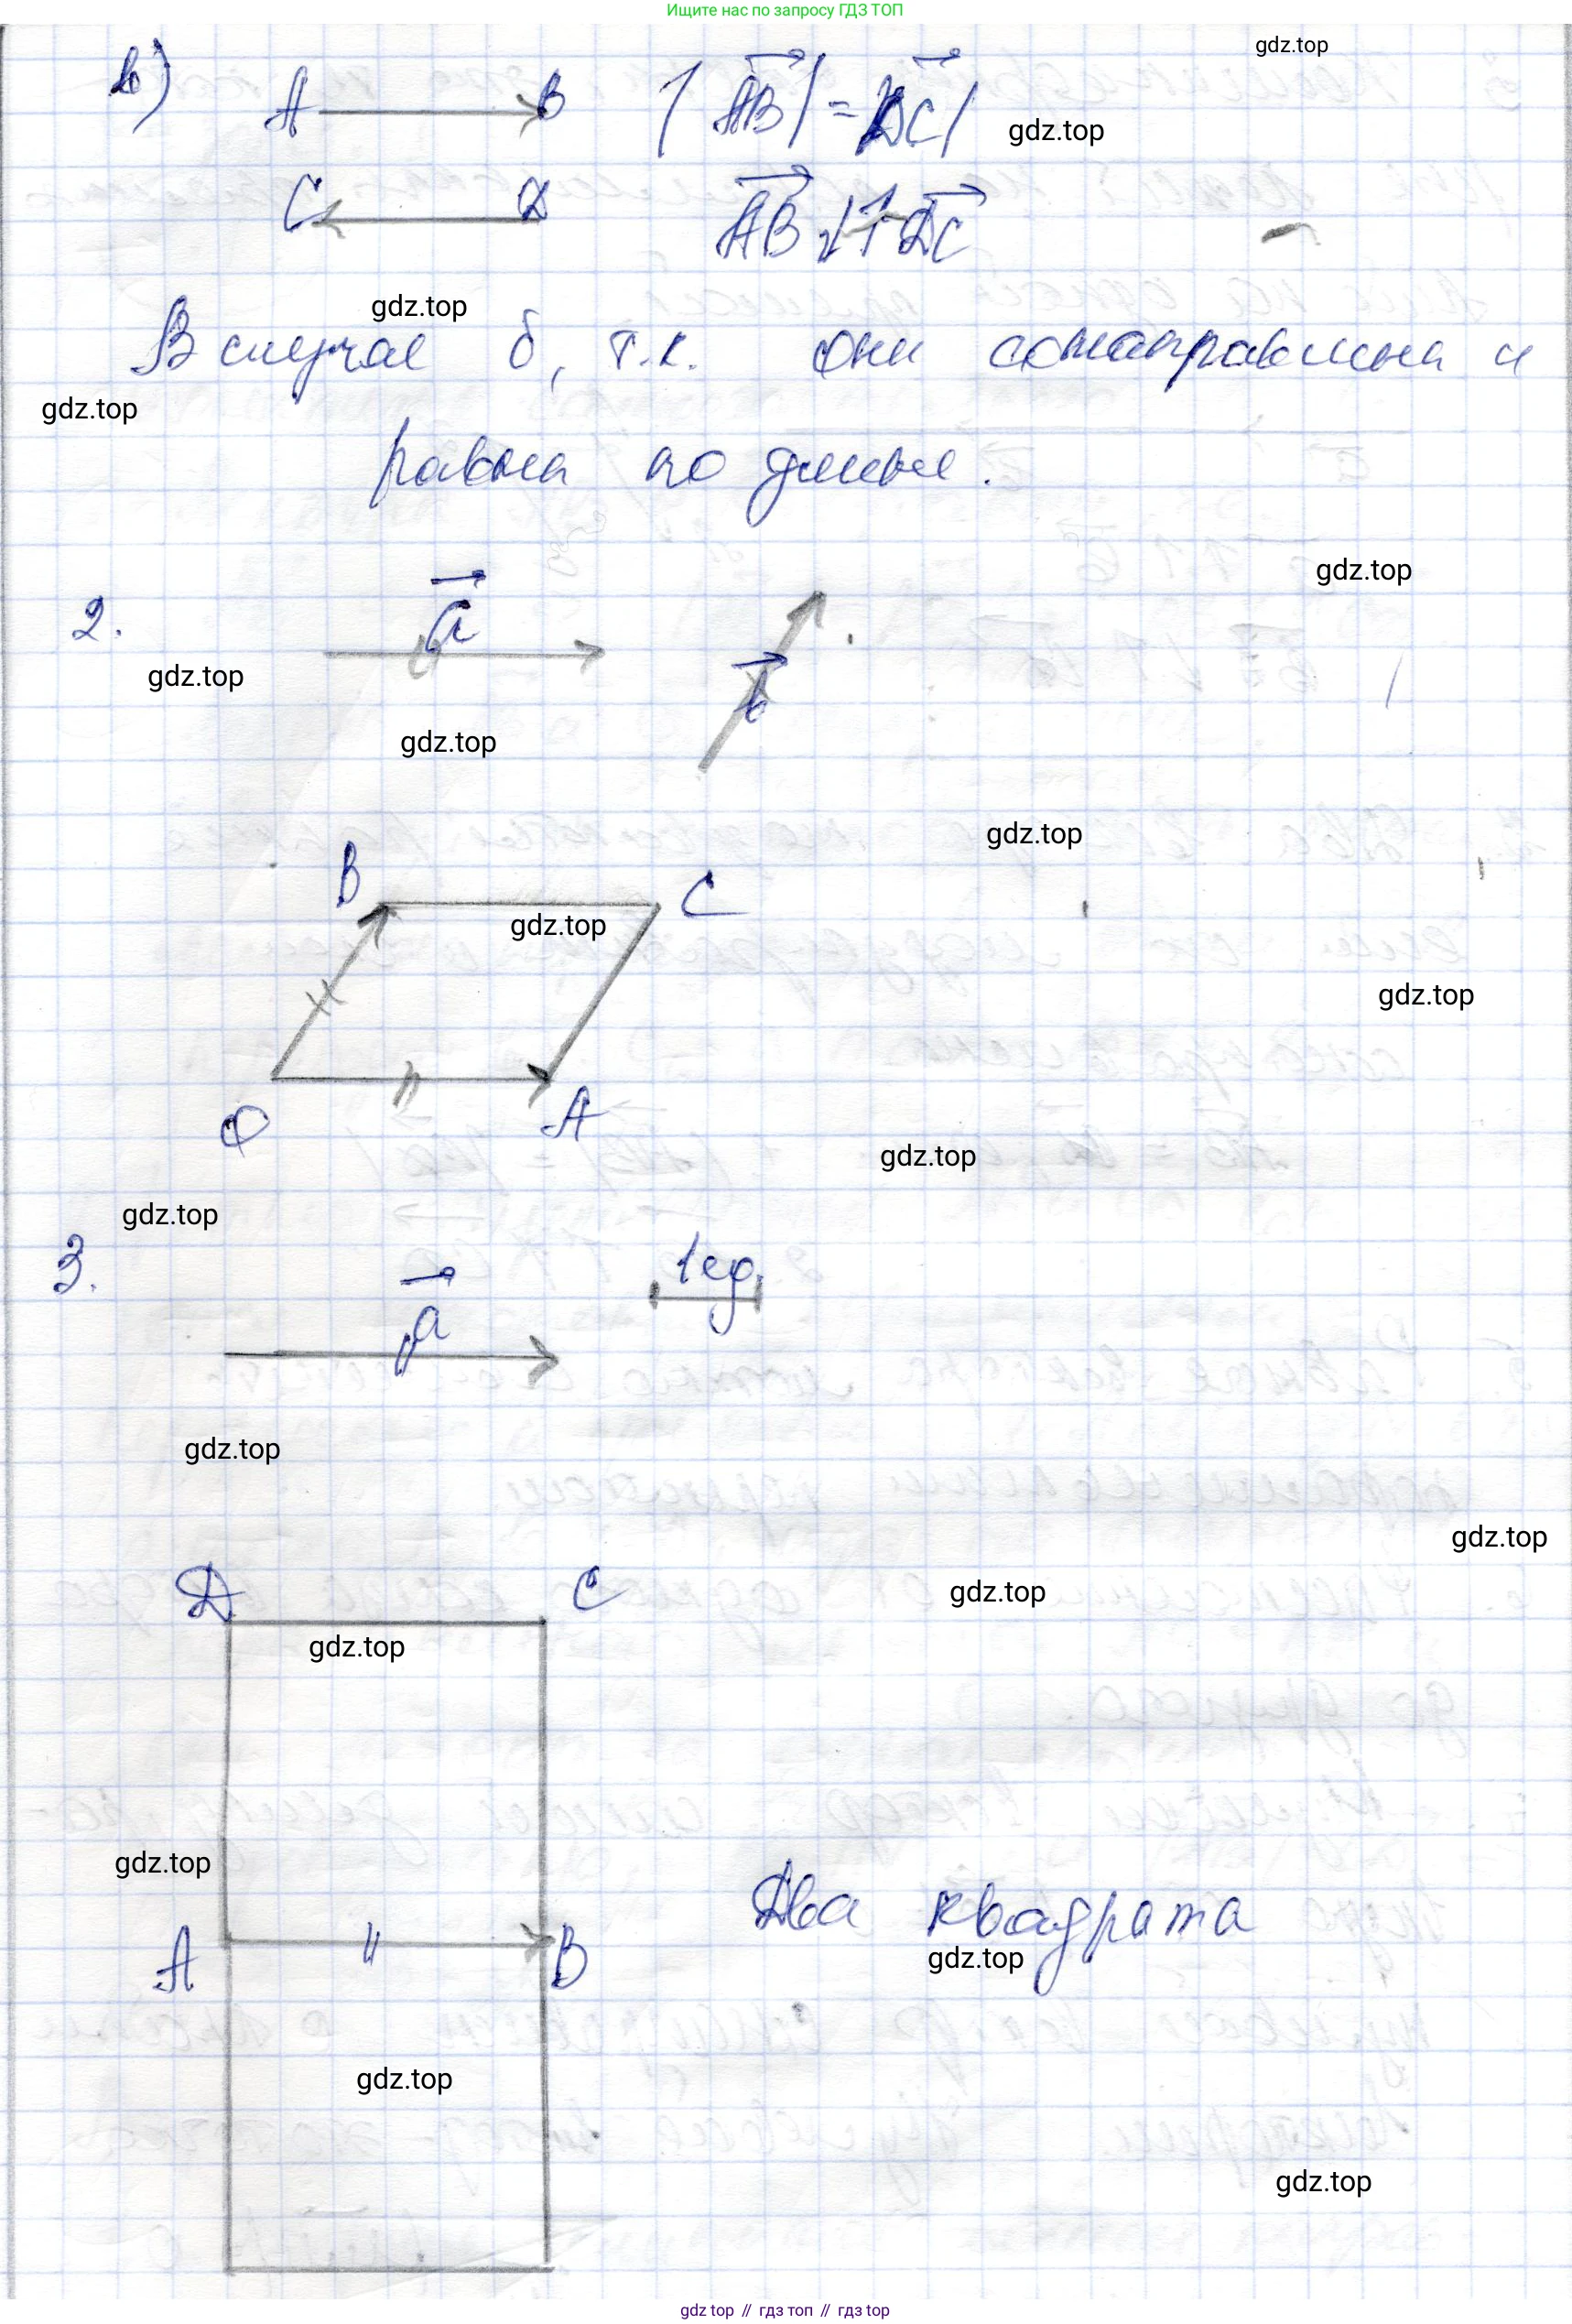 Ищите нас по запросу ГДЗ ТОП
gdz.top
в) A B |AB| = |DC|
gdz.top
C D AB ↓↑ DC
gdz.top
В случае б, т.к. они сонаправлены и
gdz.top
равны по длине.
gdz.top
2. a
b
gdz.top
gdz.top
gdz.top
B C
gdz.top
gdz.top
O A
gdz.top
gdz.top
3. a 1 ед.
gdz.top
gdz.top
D C
gdz.top
gdz.top
gdz.top
Два квадрата
A B
gdz.top
gdz.top
gdz.top
gdz top // гдз топ // гдз top